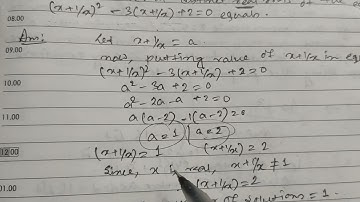 (x+1/x)² - 3(x+1/x) + 2 = 0 equals.
08.00
Ans: Let x + 1/x = a.
09.00 now, putting value of x+1/x in
(x+1/x)² - 3(x+1/x) + 2 = 0
10.00 a² - 3a + 2 = 0
a² - 2a - a + 2 = 0
11.00 a(a-2) - 1(a-2) = 0
a = 1 | a = 2
12.00 (x+1/x) = 1 (x+1/x) = 2
Since, x is real, x+1/x ≠ 1
01.00 (x+1/x) = 2
of solutions = 1.